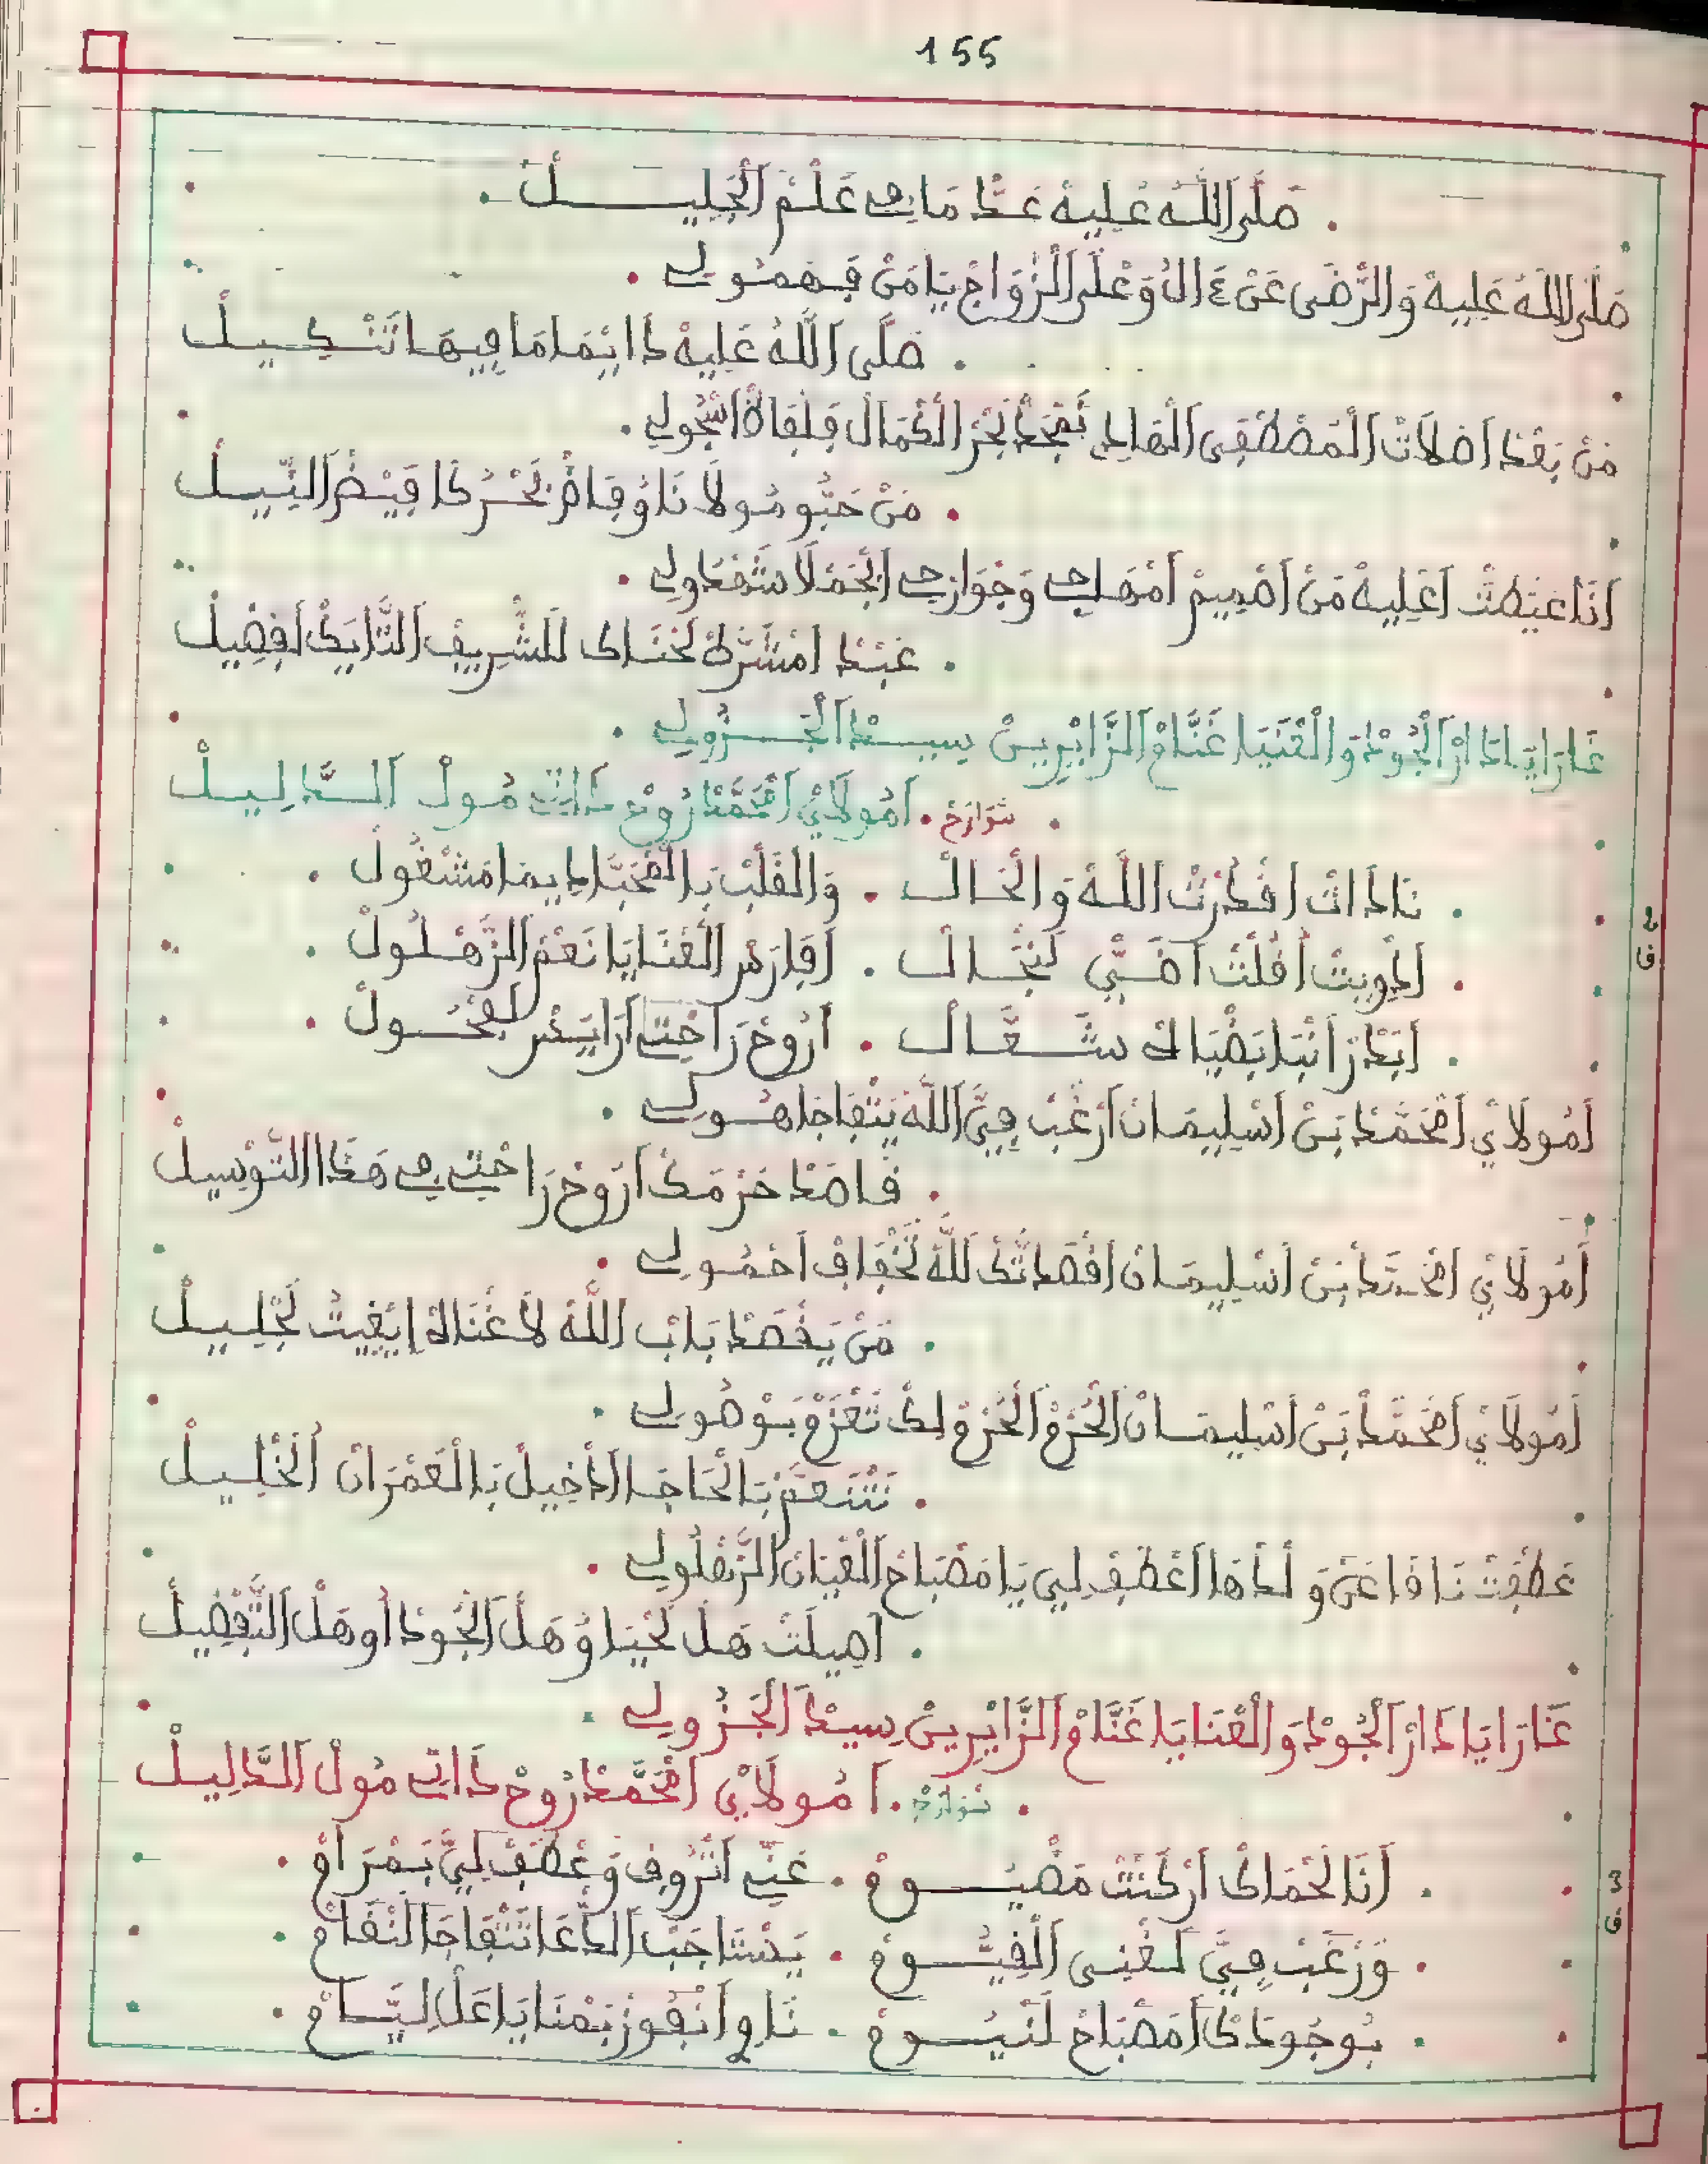 155
صَلَّى اللَّهُ عْلِيهْ عَدّْ مَا فِي عَلْمْ الْجَلِيلْ
صَلَّى اللَّهُ عَلِيهْ وَالرّْضَى عَنْ ءَالُ وَعْلَى الَزْوَاجْ يَا مَنْ فَهمُولِي
صَلَّى اللَّهُ عَلِيهْ دَايْمَا مَا فِيهَا تَنْكِيلْ
مَنْ بَعْدْ اصْلَاتْ الْمَصْطْفَى الْهَادِي نَمْجَدْ بَحْرْ الْكْمَالْ فَلْفَاهْ اسْجُولِي
مَنْ حَبُّو مُولَانَا وُفَاضْ بَحْرُ كَا فَيْضْ النِّيلْ
أَنَا عَيَّطْتْ اعْلِيهْ مَنْ اصْمِيمْ امْهَاجِي وَجْوَارْحِي الْجَمْلَا شَهْدُولِي
عَبْدْ امْشَرَّطْ لَحْنَاكْ لَلشّْرِيفْ التَّايَكْ افْضِيلْ
غَارَا يَا دَارْ الْجُودْ وَالْعْنَيَا غَنَّامْ الزَّايْرِينْ سِيدْ الْجَزُولِي
شَوَارَحْ . أَمُولَايْ امْحَمَّدْ رُوحْ دَاتِي مُولْ الدَّلِيلْ
نَادَاتْ افْدَرْتْ اللَّهْ وَالْحَالْ . وَالْقَلْبْ بَالْمْحَبَّا دِيمَا مَشْغُولْ
2
ف
ادْوِيتْ افُلْتْ اضَيّْ لَنْجَالْ . أَفَارَسْ الْعْنَايَا نَعْمْ الزَّهْلُولْ
ابَدْرْ انْبَا بَضْيَاكْ شَعَّالْ . أَرُوحْ رَاحْتِي أَرَايَسْ لَفْحُولْ
أَمُولَايْ امْحَمَّدْ بَنْ اسْلِيمَانْ أَرْغَبْ فِيَّ اللَّهْ يَتْفَاجَا هُولِي
فَاصَدْ حَرْمَكْ أَرُوحْ رَاحْتِي فِي هَدَا التَّوْسِيلْ
أَمُولَايْ امْحَمَّدْ بَنْ اسْلِيمَانْ افْصَدْتَكْ لَلَّهْ تَخْفَافْ احْمُولِي
مَنْ يَفْصَدْ بَابْ اللَّهْ لَا غْنَاهْ إيْغِيتُ لَجْلِيلْ
أَمُولَايْ امْحَمَّدْ بَنْ اسْلِيمَانْ الْحُرْمْ الْحُرْمْ لِكْ نَعْزَمْ بَوْهُولِي
نَتْنَعَّمْ بَالْحَاجَا الدْخِيلْ بَالْعَمْرَانْ الْخْلِيلْ
عَطْفَتْ نَافَا عَنّْ وَلْدْهَا اعْطَفْ لِيَ يَا مَصْبَاحْ الْعْيَانْ الزَّعْلُولِي
اصِيلَتْ هَلْ لَحْيَا وُهَلْ الْجُودْ أُوهَلْ التَّفْضِيلْ
غَارَا يَا دَارْ الْجُودْ وَالْعْنَايَا غَنَّامْ الزَّايْرِينْ سِيدْ الْجَزُولِي
شَوَارَحْ . أَمُولَايْ امْحَمَّدْ رُوحْ دَاتِي مُولْ الدَّلِيلْ
أَنَا لَحْمَاكْ أَرْكَنْتْ مَضْيُومْ . عَنِّي اتْرُوفْ وَعْطَفْ لِيَّ بَمْرَامْ
3
ف
وَرْغَبْ فِيَّ لَغْنِى الْفِيُّومْ . يَسْتَاجَبْ الدّْعَا تَتْفَاجَا لَنْفَامْ
بُوجُودَكْ أَمَصْبَاحْ لَنْيُومْ . نَاوِي انْفُوزْ بَمْنَايَا عَلْ لِيَّامْ